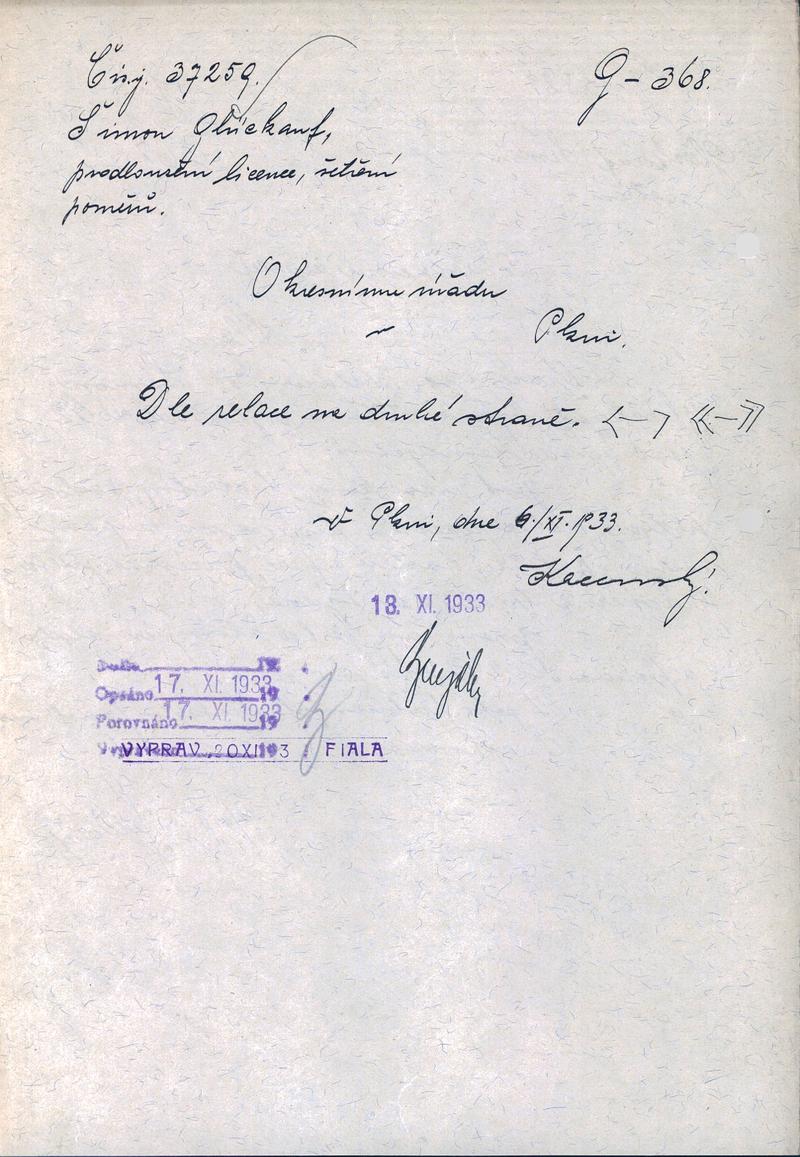 Čís.j. 37259.
G – 368.
Šimon Glückauf,
prodloužení licence, šetření
poměrů.
Okresnímu úřadu
v
Plzni.
Dle relace na druhé straně. <—> <<—>>
v Plzni, dne 6./XI. 1933.
18. XI. 1933
Došlo 19
Opsáno 17. XI. 1933
Porovnáno 17. XI. 1933
VYPRAV. 20 XI 193 FIALA